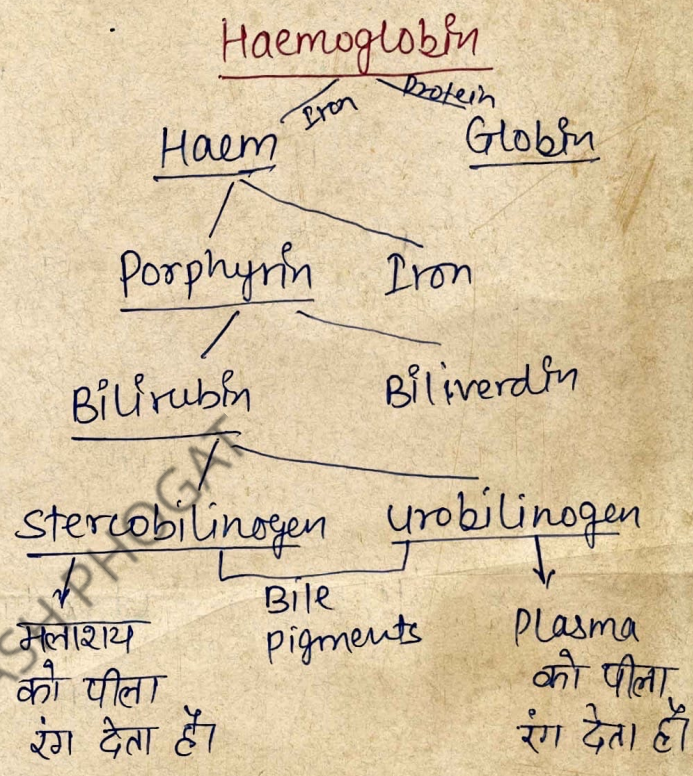 Haemoglobin
Iron Protein
Haem Globin
Porphyrin Iron
Bilirubin Biliverdin
Stercobilinogen Urobilinogen
Bile
pigments
मलाशय
को पीला
रंग देता है।
Plasma
को पीला
रंग देता है।
ASH PHOGAT